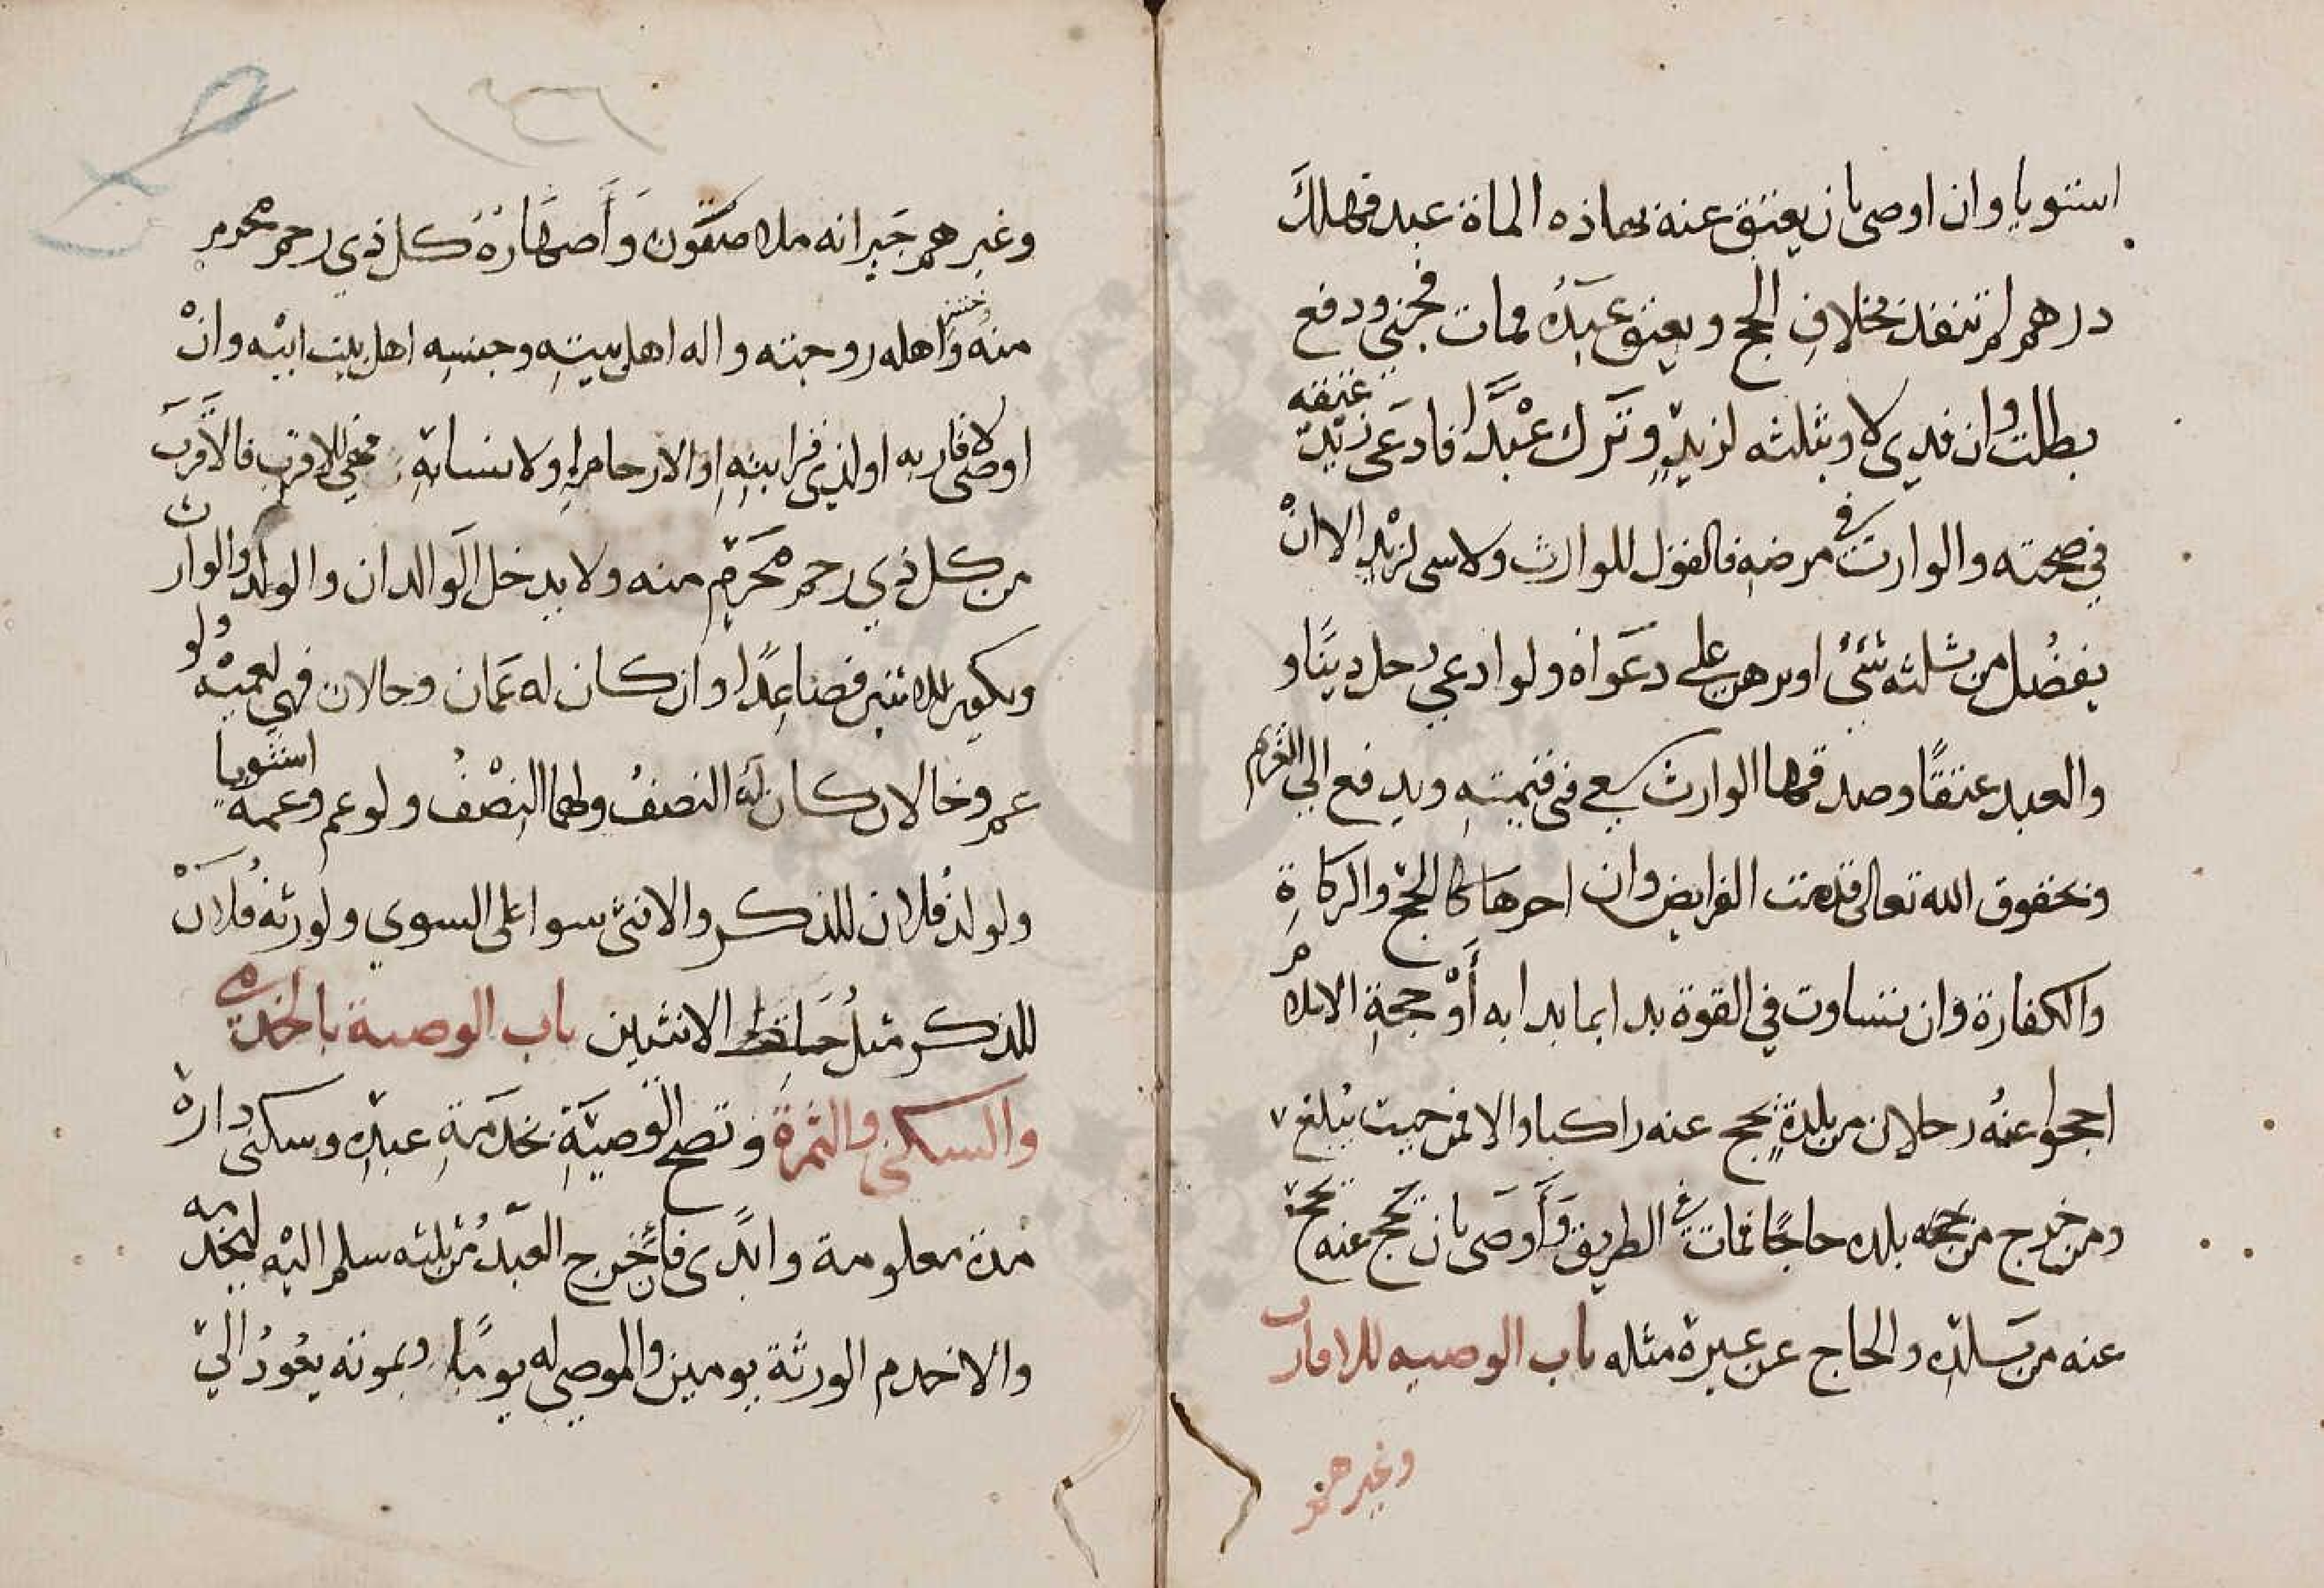 استويا وان اوصى بان يعتق عنه بهاذه الماة عبد فهلك
درهم لم تنفذ بخلاف الحج وبعتق عبده فمات فجنى ودفع
بطلت وان فدي لا وبثلثه لزيد وترك عبدا فادعى زيد عتقه
في صحته والوارث في مرضه فالقول للوارث ولاسى لزيد الا ان
يفضل من ثلثه شئ او برهن على دعواه ولو ادعى رحل دينا و
والعبد عتقا وصدقهما الوارث يسعى في قيمته ويدفع الى الغريم
وبحقوق الله تعالى قدمت الفرايض وان اخرها كالحج والزكاة
والكفارة وان تساوت في القوة بدا بما بدا به أو حجة الاسلام
احجوا عنه رحلا من بلدة يحج عنه راكبا والا فمن حيث يبلغ
ومن خرج من بلده حاجا فمات في الطريق وأوصى بان يحج عنه يحج
عنه من بلده والحاج عن غيره مثله باب الوصيه للاقارب
وغيرهم
وغيرهم جيرانه ملاصقون وأصهاره كل ذي رحم محرم
منه واهله زوجته واله اهل بيته وجنسه اهل بيت ابيه وان
اوصى لاقاربه او لذي قرابته او لارحامه او لانسابه فهي للاقرب فالاقرب
من كل ذي رحم محرم منه ولا يدخل الوالدان والولد والوارث
ويكون للاثنين فصاعدا وان كان له عمان وخالان فهي لعميه ولو
عم وخالان كان له النصف ولهما النصف ولو عم وعمة استويا
ولولد فلان للذكر والانثى سوا على السوي ولورثة فلان
للذكر مثل حظ الانثيين باب الوصية بالخدمة
والسكنى والثمرة وتصح الوصية بخدمة عبده وسكنى داره
مدة معلومة وابدى فان خرج العبد من ثلثه سلم اليه ليخدمه
والا خدم الورثة يومين والموصي له يوما وبموته يعود الي